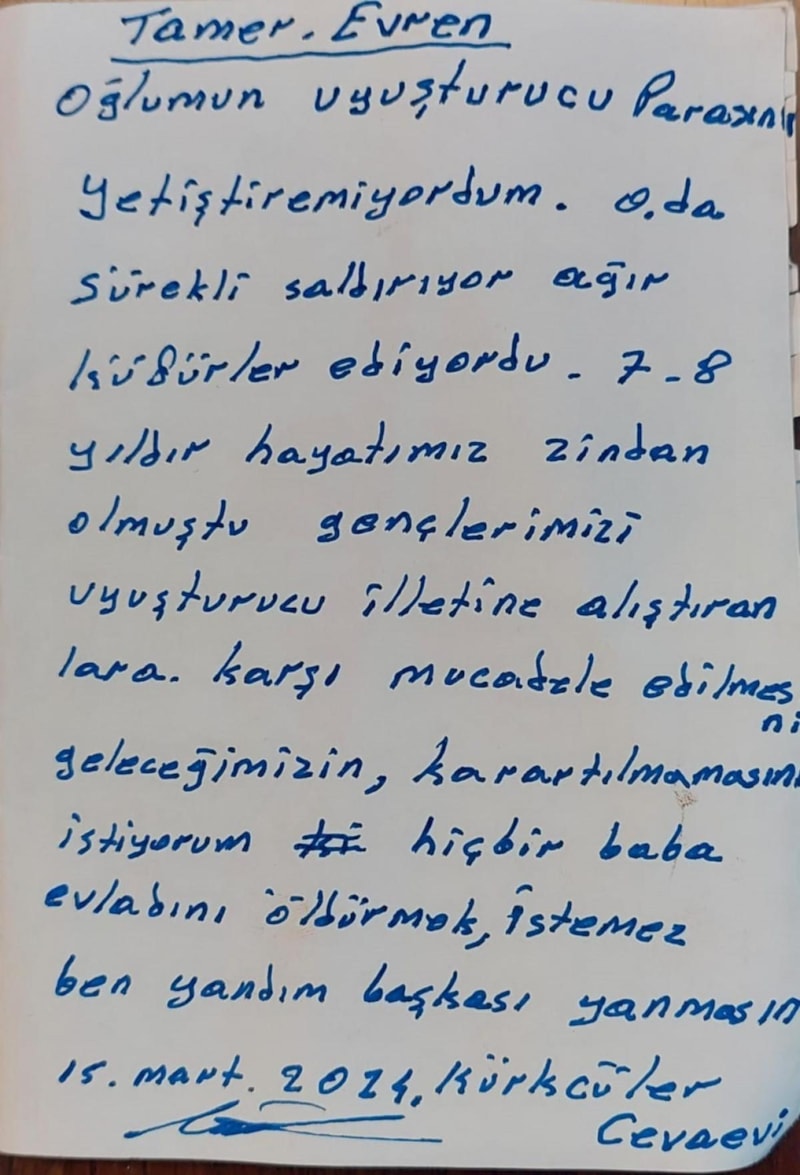 Tamer. Evren
Oğlumun uyuşturucu Parasını
yetiştiremiyordum. O.da
sürekli saldırıyor ağır
küfürler ediyordu. 7-8
yıldır hayatımız zindan
olmuştu gençlerimizi
uyuşturucu illetine alıştıran
lara. karşı mucadele edilmesi
ni
geleceğimizin, karartılmamasını
istiyorum hiçbir baba
evladını öldürmek, istemez
ben yandım başkası yanmasın
15. mart. 2024. Kürkcüler
Cevaevi